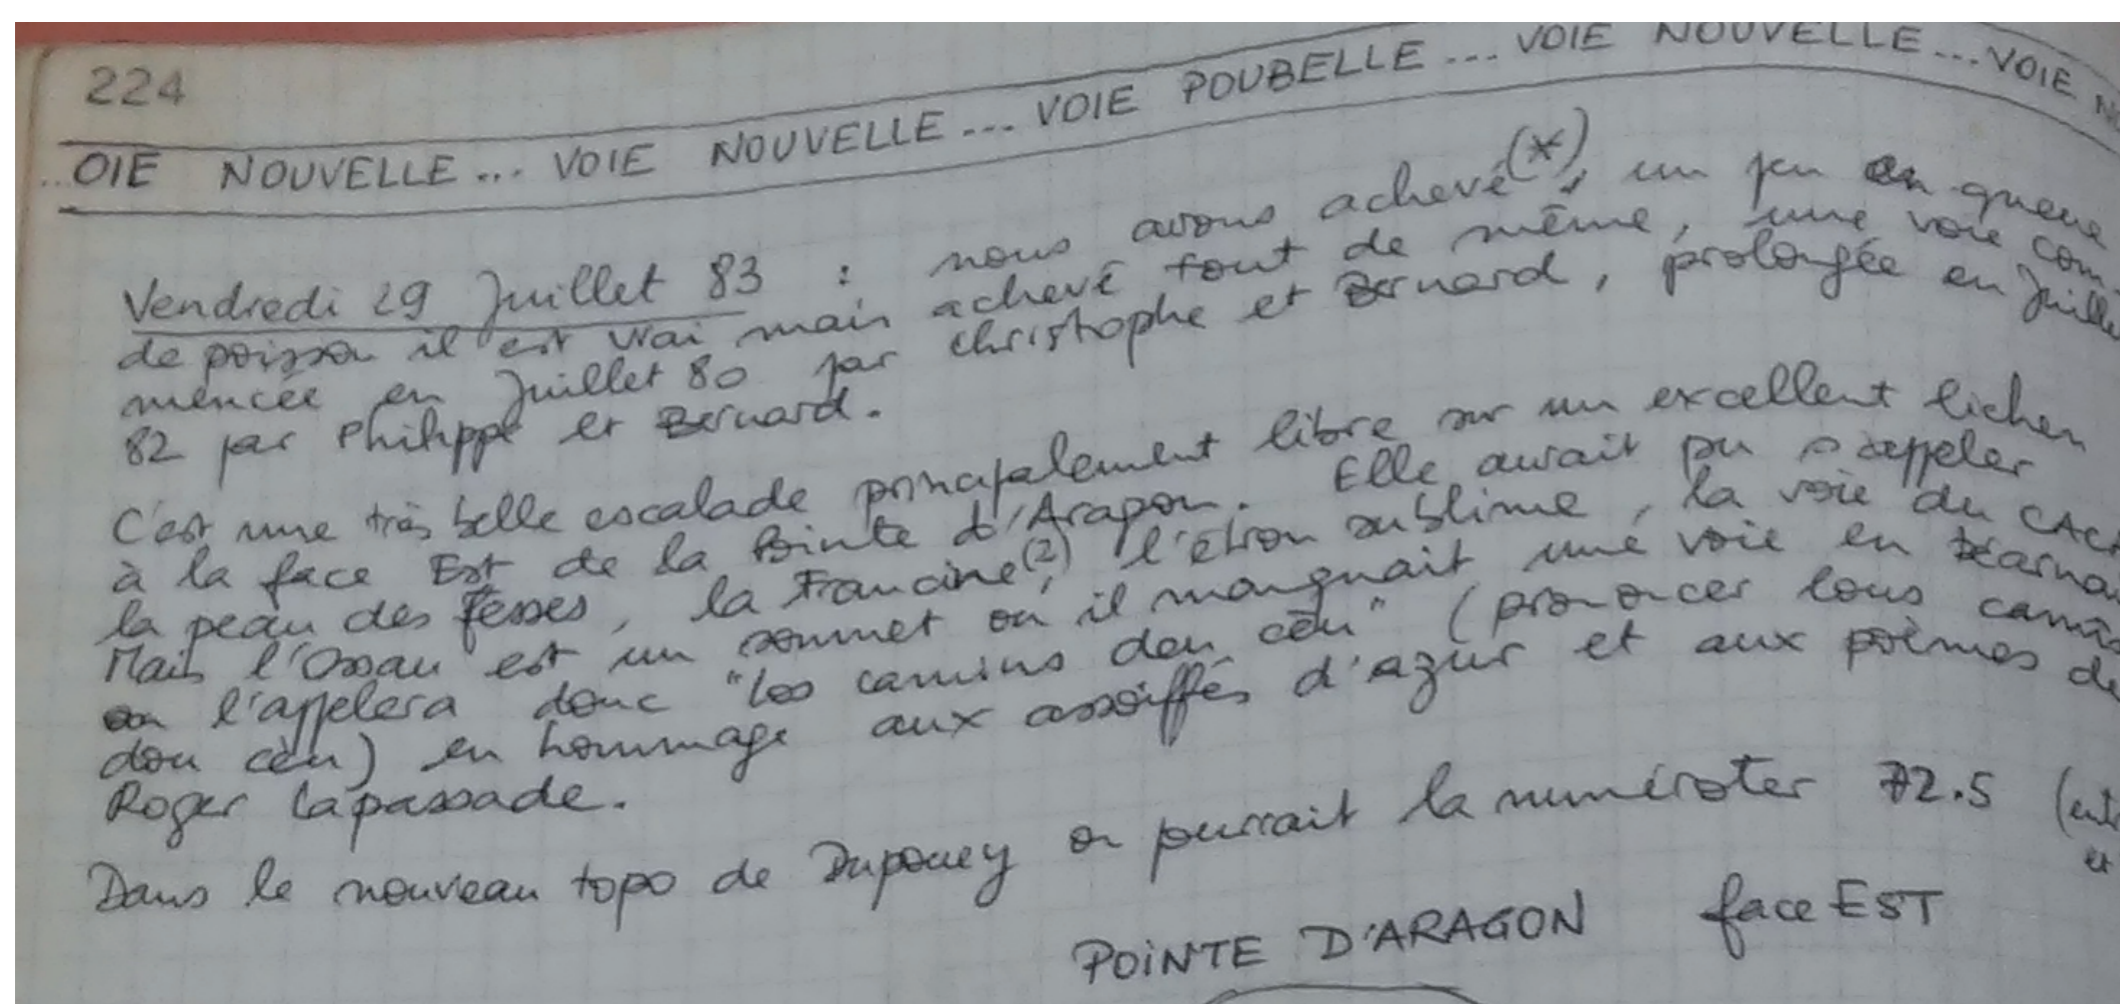 224
...OIE NOUVELLE... VOIE NOUVELLE... VOIE POUBELLE... VOIE NOUVELLE... VOIE
Vendredi 29 Juillet 83 : nous avons achevé(*), un peu en queue
de poisson il est vrai mais achevé tout de même, une voie com
mencée en Juillet 80 par Christophe et Bernard, prolongée en Juille
82 par Philippe et Bernard.
C'est une très belle escalade principalement libre sur un excellent lichen
à la face Est de la Pointe d'Aragon. Elle aurait pu s'appeler
la peau des fesses, la Francine(2), l'étron sublime, la voie du CAC
Mais l'Ossau est un sommet où il manquait une voie en béarna
on l'appelera donc "los camins deu cèu" (prononcer lous camis
dou cèu) en hommage aux assoiffés d'azur et aux poèmes de
Roger Lapassade.
Dans le nouveau topo de Dupouey on pourrait la numéroter 72.5 (ent
et
POINTE D'ARAGON face EST